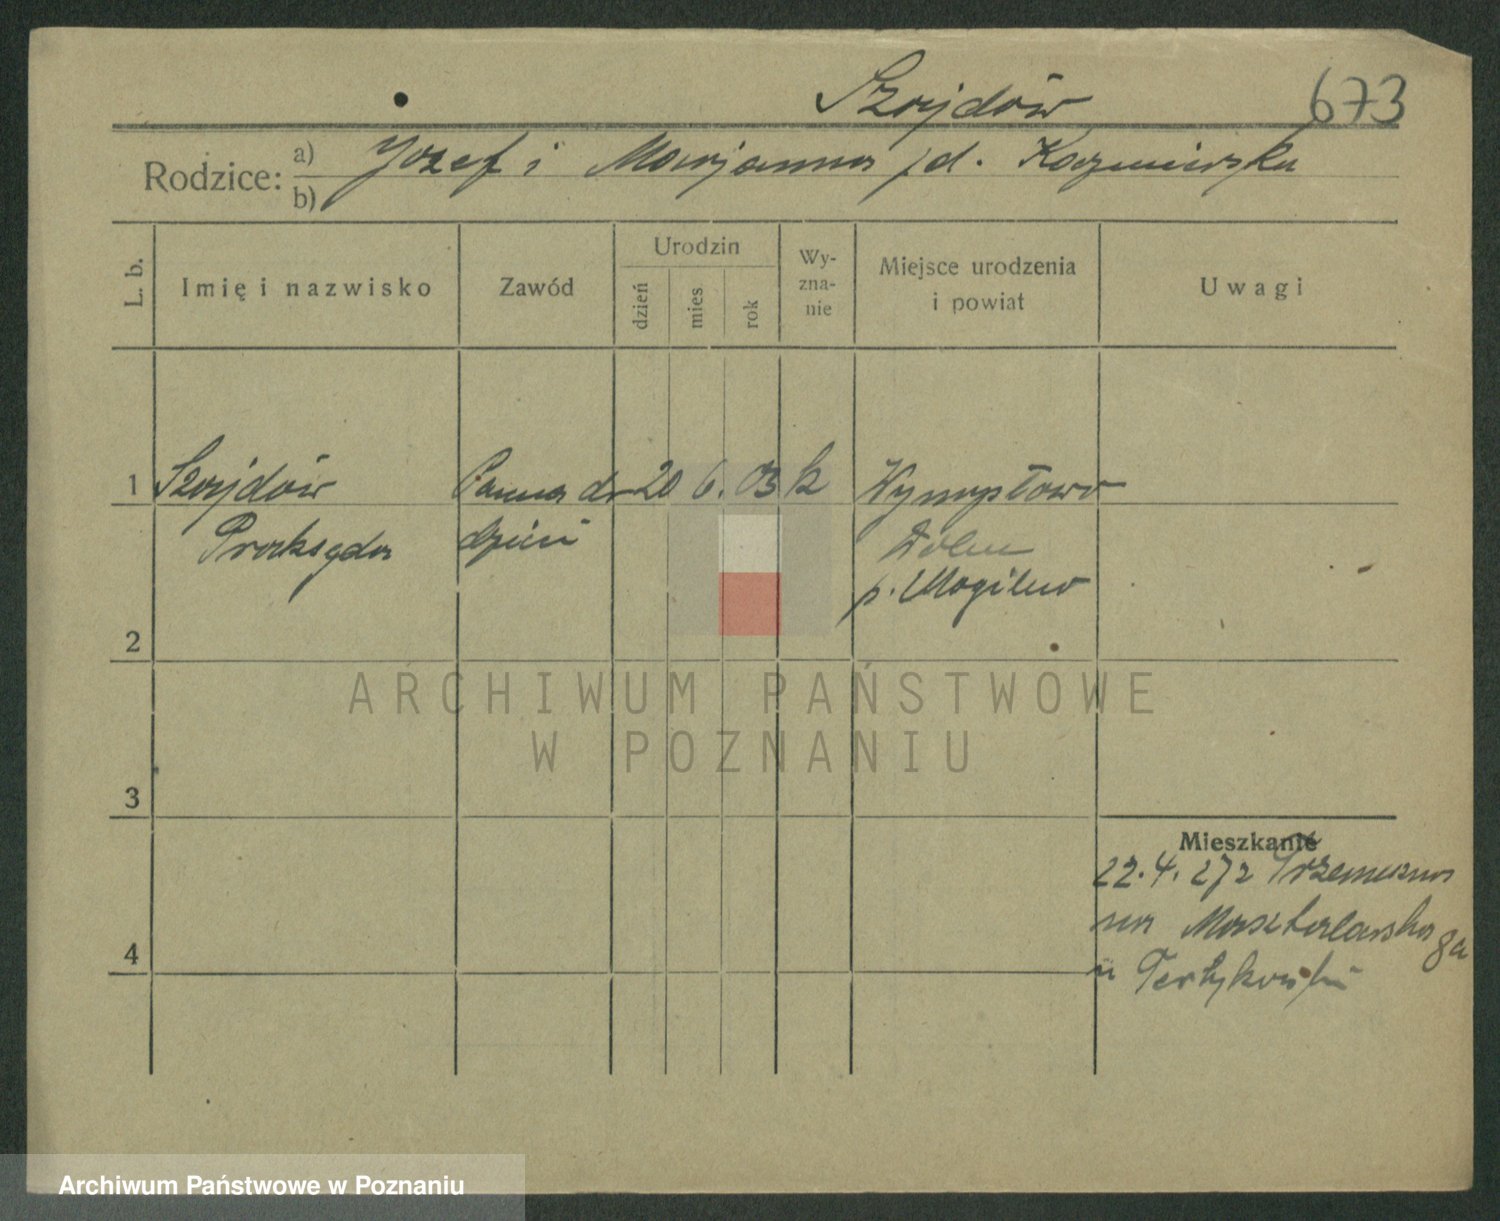 Szajdów 673
Rodzice: a) Józef i Marjanna d. Kaźmierska
b)
L. b. Imię i nazwisko Zawód Urodzin dzień mies rok Wyznanie Miejsce urodzenia i powiat Uwagi
1 Szajdów Panna do 20 6. 03 k Wymysłowo
Praksyda dzieci Dolne
p. Mogilno
2
ARCHIWUM PAŃSTWOWE
W POZNANIU
3
Mieszkanie
22.4.27 z Trzemeszna
na Masztalarska 8a
4
u
Archiwum Państwowe w Poznaniu